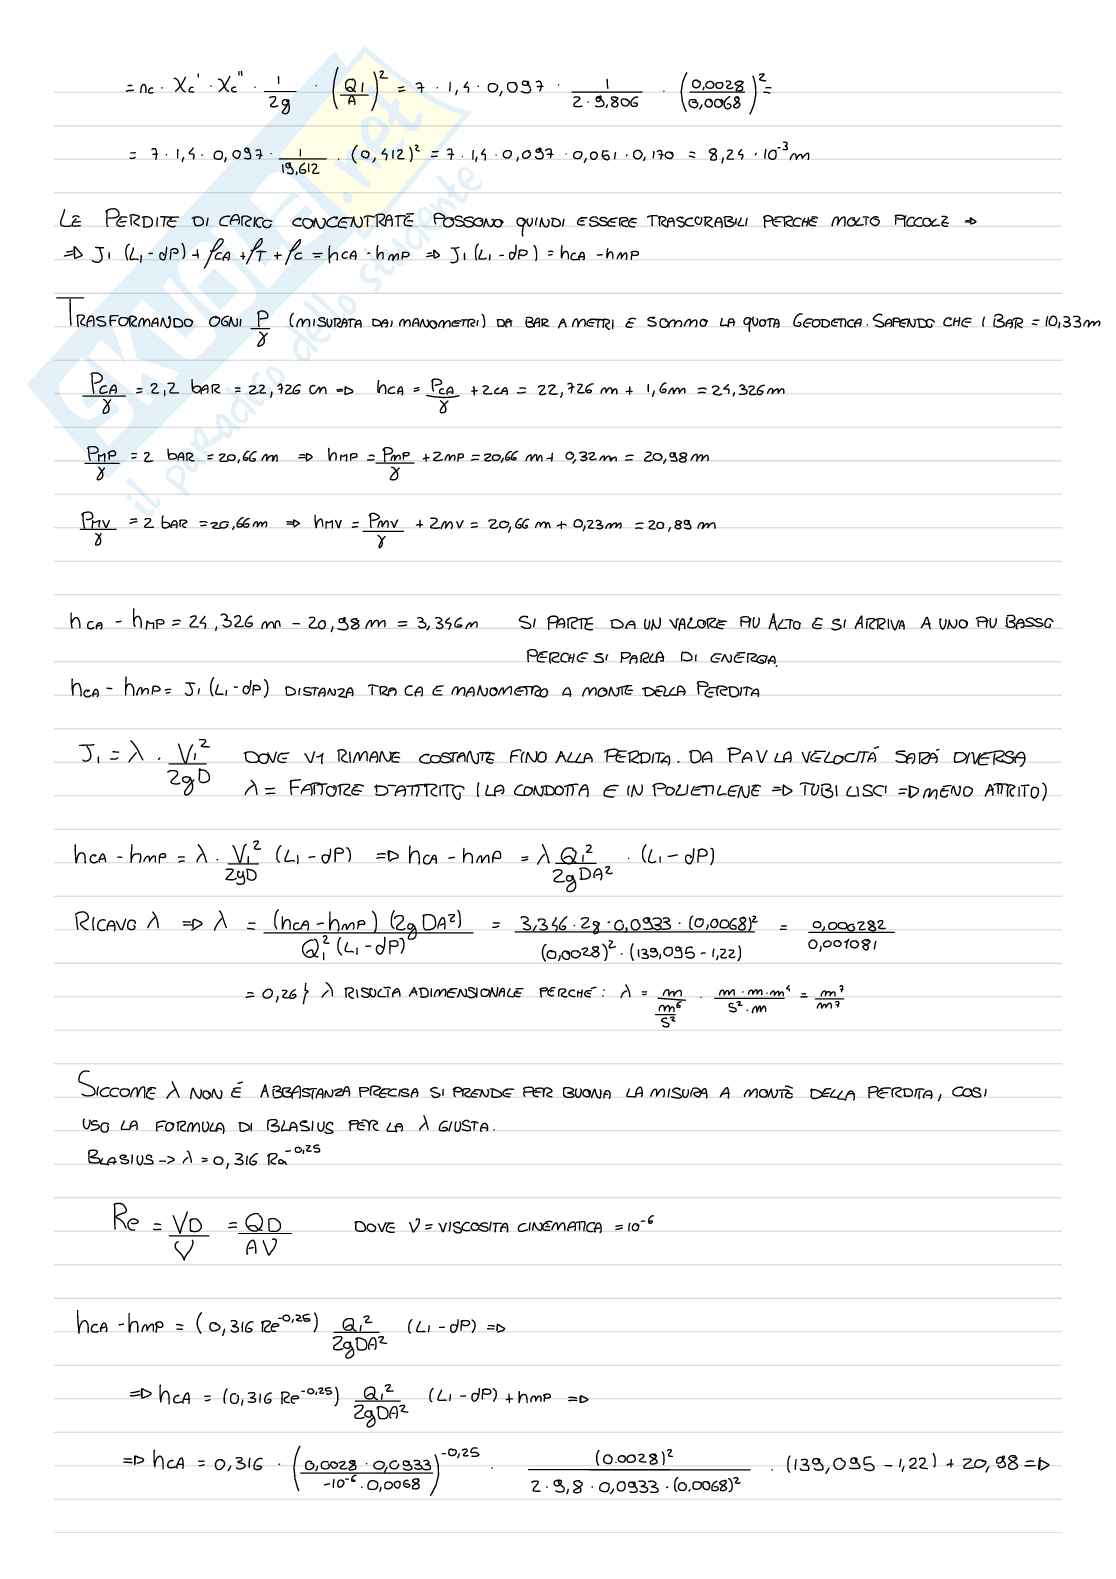 = nc · χc' · χc'' · 1/2g · (Q1/A)² = 7 · 1,4 · 0,097 · 1/(2 · 9,806) · (0,0028/0,0068)² =
= 7 · 1,4 · 0,097 · 1/19,612 · (0,412)² = 7 · 1,4 · 0,097 · 0,051 · 0,170 = 8,24 · 10⁻³ m
LE PERDITE DI CARICO CONCENTRATE POSSONO QUINDI ESSERE TRASCURABILI PERCHE MOLTO PICCOLE ⇒
⇒ J1 (L1 - dP) + ρCA + ρT + ρC = hCA - hMP ⇒ J1 (L1 - dP) = hCA - hMP
TRASFORMANDO OGNI P/γ (MISURATA DAI MANOMETRI) DA BAR A METRI E SOMMO LA QUOTA GEODETICA. SAPENDO CHE 1 BAR = 10,33m
PCA/γ = 2,2 bAR = 22,726 cm ⇒ hCA = PCA/γ + zCA = 22,726 m + 1,6m = 24,326m
PMP/γ = 2 bAR = 20,66 m ⇒ hMP = PMP/γ + zMP = 20,66 m + 0,32m = 20,98m
PMV/γ = 2 bAR = 20,66m ⇒ hMV = PMV/γ + zMV = 20,66 m + 0,23m = 20,89m
hCA - hMP = 24,326 m - 20,98 m = 3,346m SI PARTE DA UN VALORE PIU ALTO E SI ARRIVA A UNO PIU BASSO
PERCHE SI PARLA DI ENERGIA.
hCA - hMP = J1 (L1 - dP) DISTANZA TRA CA E MANOMETRO A MONTE DELLA PERDITA
J1 = λ · V1²/2gD DOVE V1 RIMANE COSTANTE FINO ALLA PERDITA. DA P A V LA VELOCITÁ SARÁ DIVERSA
λ = FATTORE D'ATTRITO (LA CONDOTTA E IN POLIETILENE ⇒ TUBI LISCI ⇒ MENO ATTRITO)
hCA - hMP = λ · V1²/2gD (L1 - dP) ⇒ hCA - hMP = λ Q1²/2gDA² · (L1 - dP)
RICAVO λ ⇒ λ = (hCA - hMP) (2gDA²)/Q1² (L1 - dP) = 3,346 · 2g · 0,0933 · (0,0068)²/(0,0028)² · (139,095 - 1,22) = 0,000282/0,001081
= 0,26} λ RISULTA ADIMENSIONALE PERCHÉ: λ = m/(m⁶/s²) · m · m · m⁴/s² · m = m⁷/m⁷
SICCOME λ NON É ABBASTANZA PRECISA SI PRENDE PER BUONA LA MISURA A MONTE DELLA PERDITA, COSI
USO LA FORMULA DI BLASIUS PER LA λ GIUSTA.
BLASIUS → λ = 0,316 Re⁻⁰,²⁵
Re = VD/ν = QD/Aν DOVE ν = VISCOSITA CINEMATICA = 10⁻⁶
hCA - hMP = (0,316 Re⁻⁰,²⁵) Q1²/2gDA² (L1 - dP) ⇒
⇒ hCA = (0,316 Re⁻⁰,²⁵) Q1²/2gDA² (L1 - dP) + hMP ⇒
⇒ hCA = 0,316 · (0,0028 · 0,0933/-10⁻⁶ · 0,0068)⁻⁰,²⁵ · (0.0028)²/2 · 9,8 · 0,0933 · (0,0068)² · (139,095 - 1,22) + 20,98 ⇒
SKUOLA.net
il paradiso dello studente